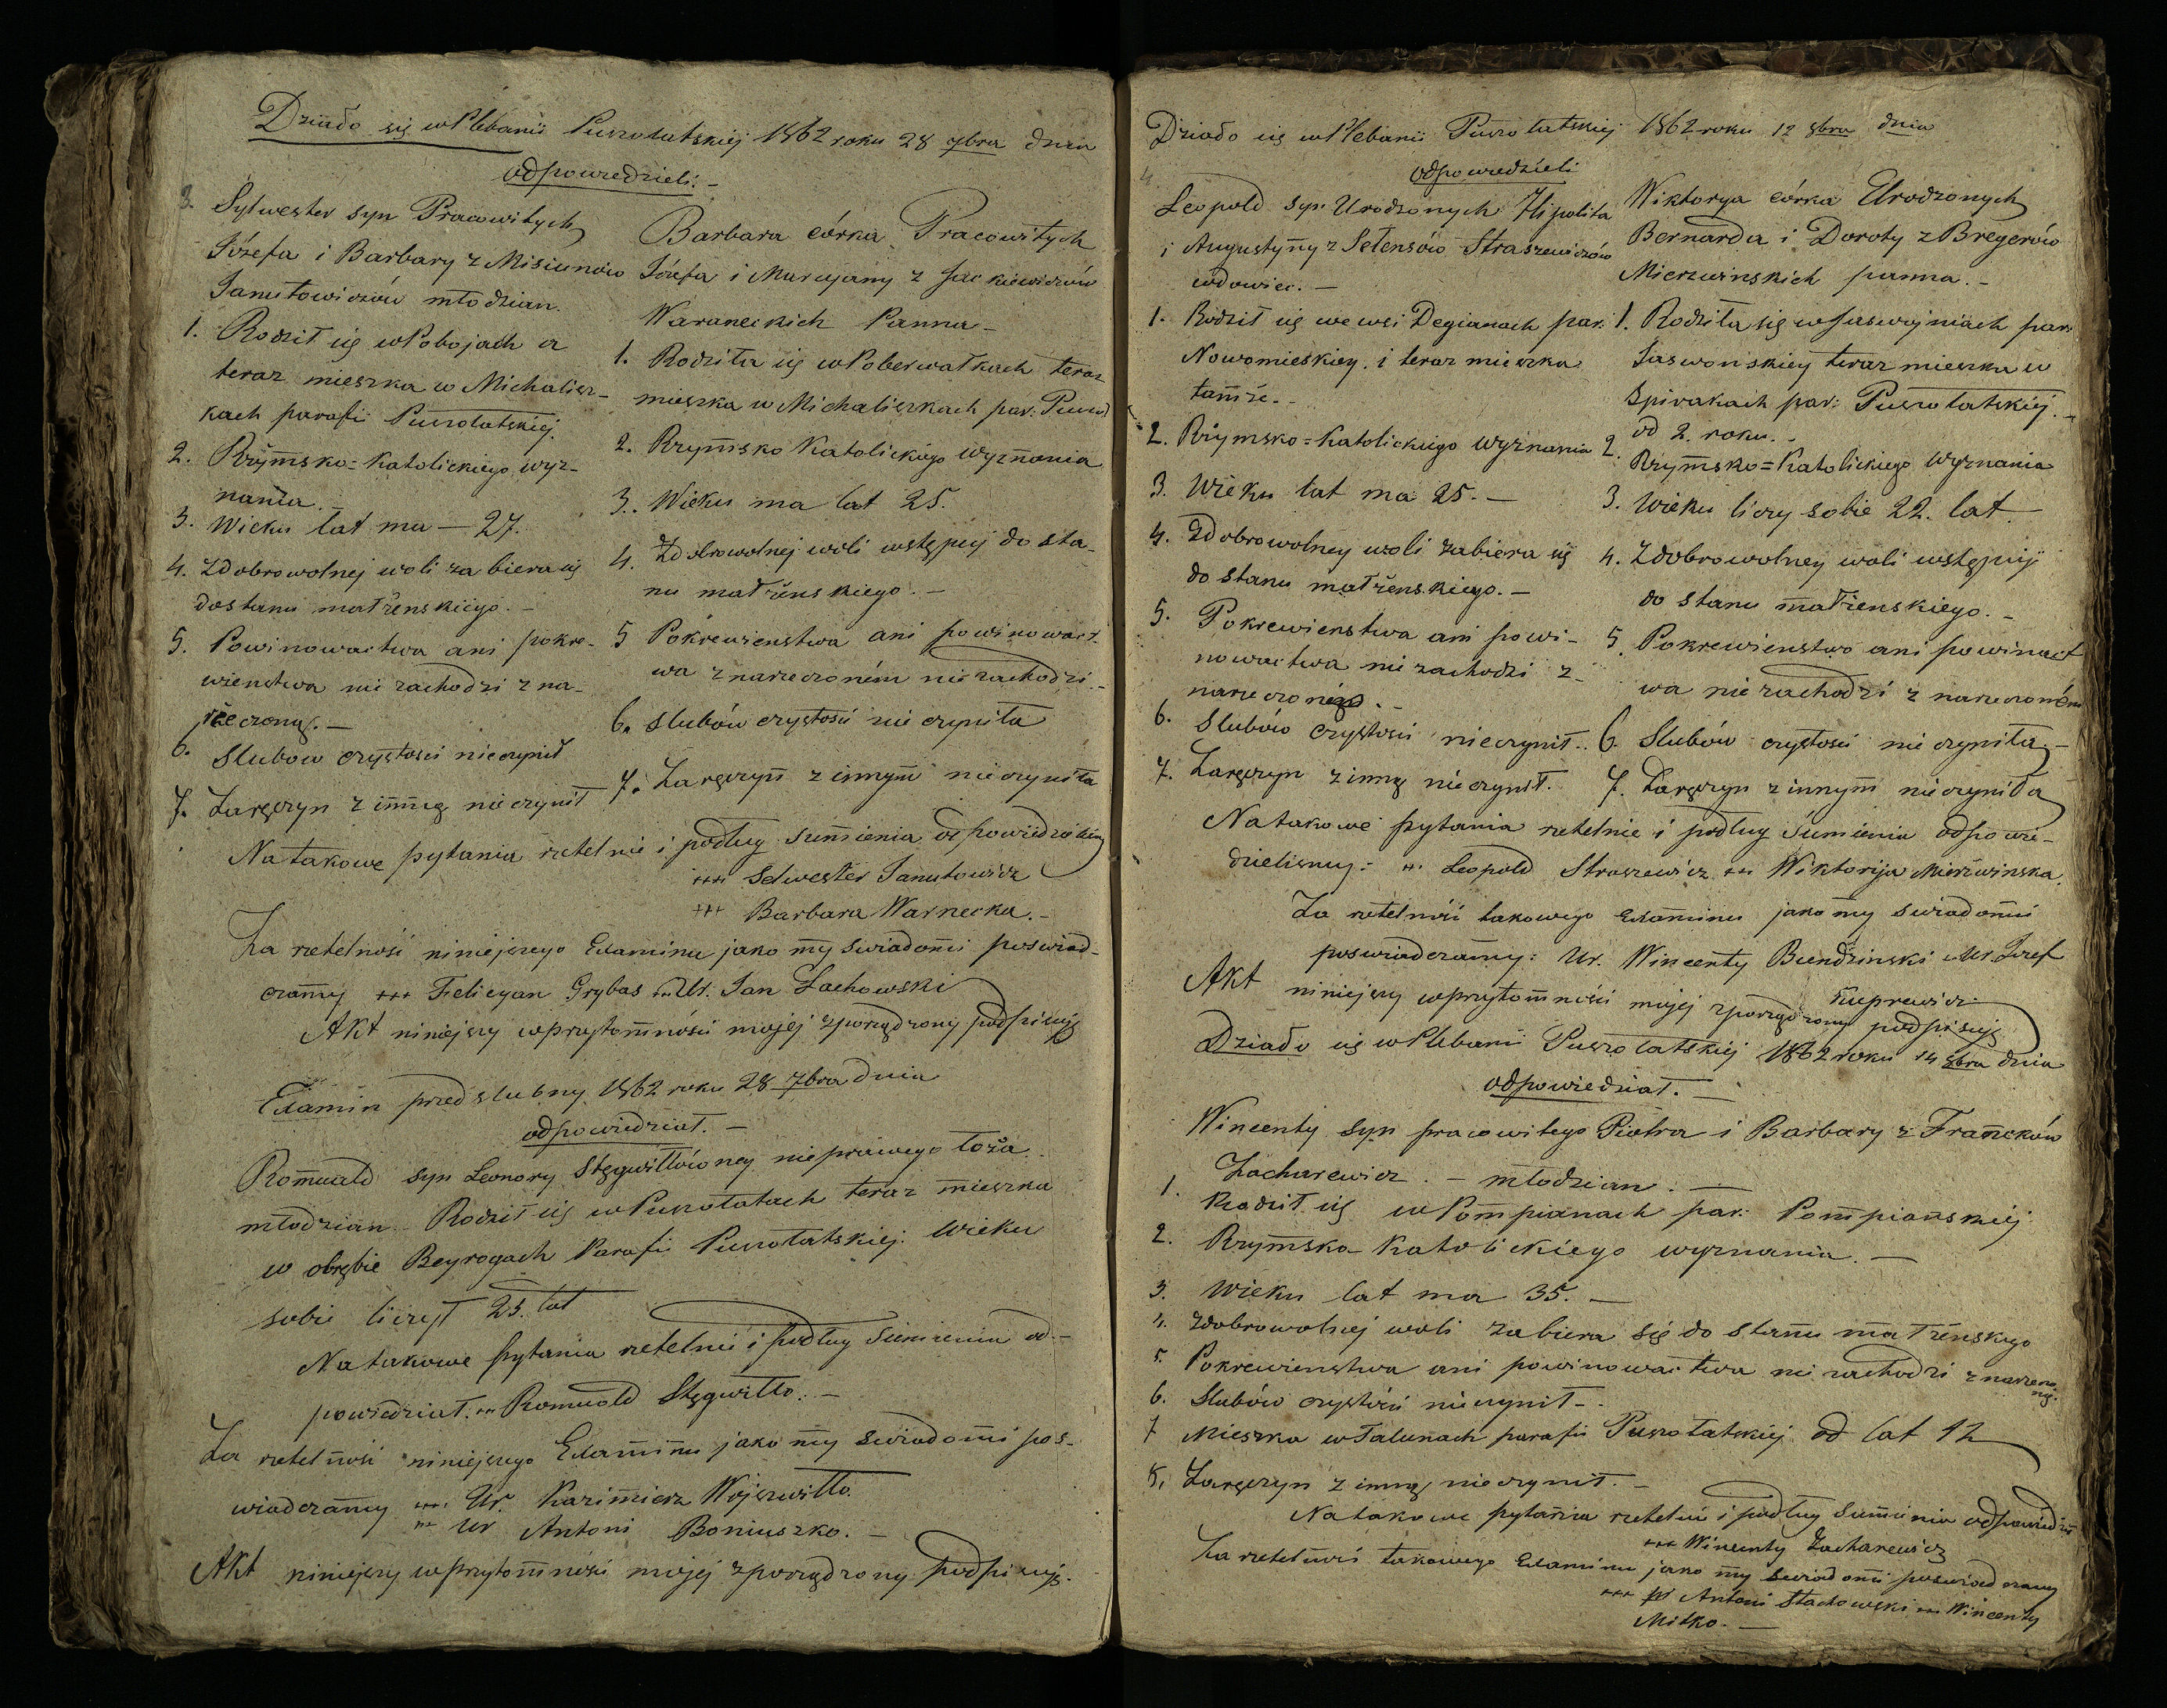 Działo się w Plebanii Puszołatskiej 1862 roku 28 7bra dnia
odpowiedzieli. -
3. Sylwester syn Pracowitych
Józefa i Barbary z Misiunów
Janutowiczów młodzian.
1. Rodził się w Pobojach a
teraz mieszka w Michalisz-
kach parafii Puszołatskiej.
2. Rzymsko=Katolickiego wyz-
nania. -
3. Wieku lat ma — 27.
4. Z dobrowolnej woli zabiera się
do stanu małżenskiego. -
5. Powinowactwa ani pokre-
wienstwa nie zachodzi z na-
rzeczoną. —
6. Slubow czystosci nieczynił
7. Zaręczyn z inną nieczynił
Barbara córka Pracowitych
Józefa i Maryanny z Jackiewiczów
Waraneckich Panna -
1. Rodziła się w Poberwałkach teraz
mieszka w Michaliszkach par: Puszoł
2. Rzymsko Katolickiego wyznania
3. Wieku ma lat 25.
4. Z dobrowolnej woli wstępuj do sta-
nu małżenskiego. -
5 Pokrewienstwa ani powinowact-
wa z narzeczoném nie zachodzi. -
6. Slubów czystosci nie czyniła
7. Zaręczyn z innym nieczyniła
Na takowe pytania rzetelnie i podług sumienia odpowiedzielismy
+++ Selwester Janutowicz
+++ Barbara Warnecka. -
Za rzetelność niniejszego Examinu jako my swiadomi poswiad-
czamy +++ Felicyan Grybas +++ Ur. Jan Lachowski
Akt niniejszy w przytomności mojej zporządzony podpisuję
Examin przedslubny 1862 roku 28 7bra dnia
odpowiedział. —
Romuald syn Leonory Stęgwiłłówney nieprawego łoża
młodzian - Rodził się w Puszołatach teraz mieszka
w obrębie Beyrogach Parafii Puszołatskiej. Wieku
sobie liczył 23. lat
Na takowe pytania rzetelnie i podług Sumienia od-
powiedział. +++ Romuald Stęgwiłło. —
Za rzetelność niniejszego Examinu jako my swiadomi pos-
wiadczamy +++ Ur. Kazimierz Wojszwiłło.
+++ Ur Antoni Boniuszko. —
Akt niniejszy w przytomności mojej zporządzony podpisuję.
Działo się w Plebanii Puszołatskiej 1862 roku 12 8bra dnia
odpowiedzieli
4 Leopold syn Urodzonych Hipolita
i Augustyny z Setensów Straszewiczów
wdowiec. —
1. Rodził się we wsi Degianach par:
Nowomieskiey. i teraz mieszka
tamże. -
2. Rzymsko=Katolickiego wyznania
3. Wieku lat ma 25. —
4. Z dobrowolney woli zabiera się
do stanu małżenskiego. —
5. Pokrewienstwa ani powi-
nowactwa nie zachodzi z
narzeczoną. -
6. Slubów czystosci nieczynił.
7. Zaręczyn z inną nieczynił.
Wiktorya córka Urodzonych
Bernarda i Doroty z Bregerów
Mierzwinskich panna. -
1. Rodziła się w Jaswojniach par
Jaswonskiey teraz mieszka w
Spirakach par: Puszołatskiej. -
od 2. roku. -
2. Rzymsko=Katolickiego wyznania
3. Wieku liczy sobie 22. lat. —
4. Z dobrowolney woli wstępuję
do stanu małżenskiego. -
5. Pokrewienstwo ani powinact
wa nie zachodzi z narzeczoném
6. Slubów czystosci nie czyniła —
7. Zaręczyn z innym nieczyniła
Na takowe pytania rzetelnie i podług Sumienia odpowie-
dzielismy: +++ Leopold Straszewicz +++ Wiktorija Mierzwinska.
Za rzetelność takowego Examinu jako my swiadomi
poswiadczamy: Ur. Wincenty Bundzinski Ur. Józef
Kuprewicz
Akt niniejszy w przytomności mojej zporządzony podpisuję
Działo się w Plebanii Puszołatskiej 1862 roku 14 8bra dnia
odpowiedział. —
Wincenty syn pracowitego Piotra i Barbary z Francków
Zacharewicz. — młodzian. —
1. Rodził się w Pompianach par: Pompianskiéj
2. Rzymsko-Katolickiego wyznania. —
3. Wieku lat ma 35. —
4. Z dobrowolnej woli zabiera się do stanu małżenskiego
5. Pokrewienstwa ani powinowactwa nie zachodzi z narzeczo
ną.
6. Slubów czystości nieczynił -
7 Mieszka w Talunach parafii Puszołatskiej od lat 12
8. Zaręczyn z inną nieczynił. —
Na takowe pytania rzetelnie i podług Sumienia odpowiedział
+++ Wincenty Zacharewicz
Za rzetelność takowego Examinu jako my swiadomi poswiadczamy
+++ Antoni Stachowski +++ Wincenty
Mitko. —